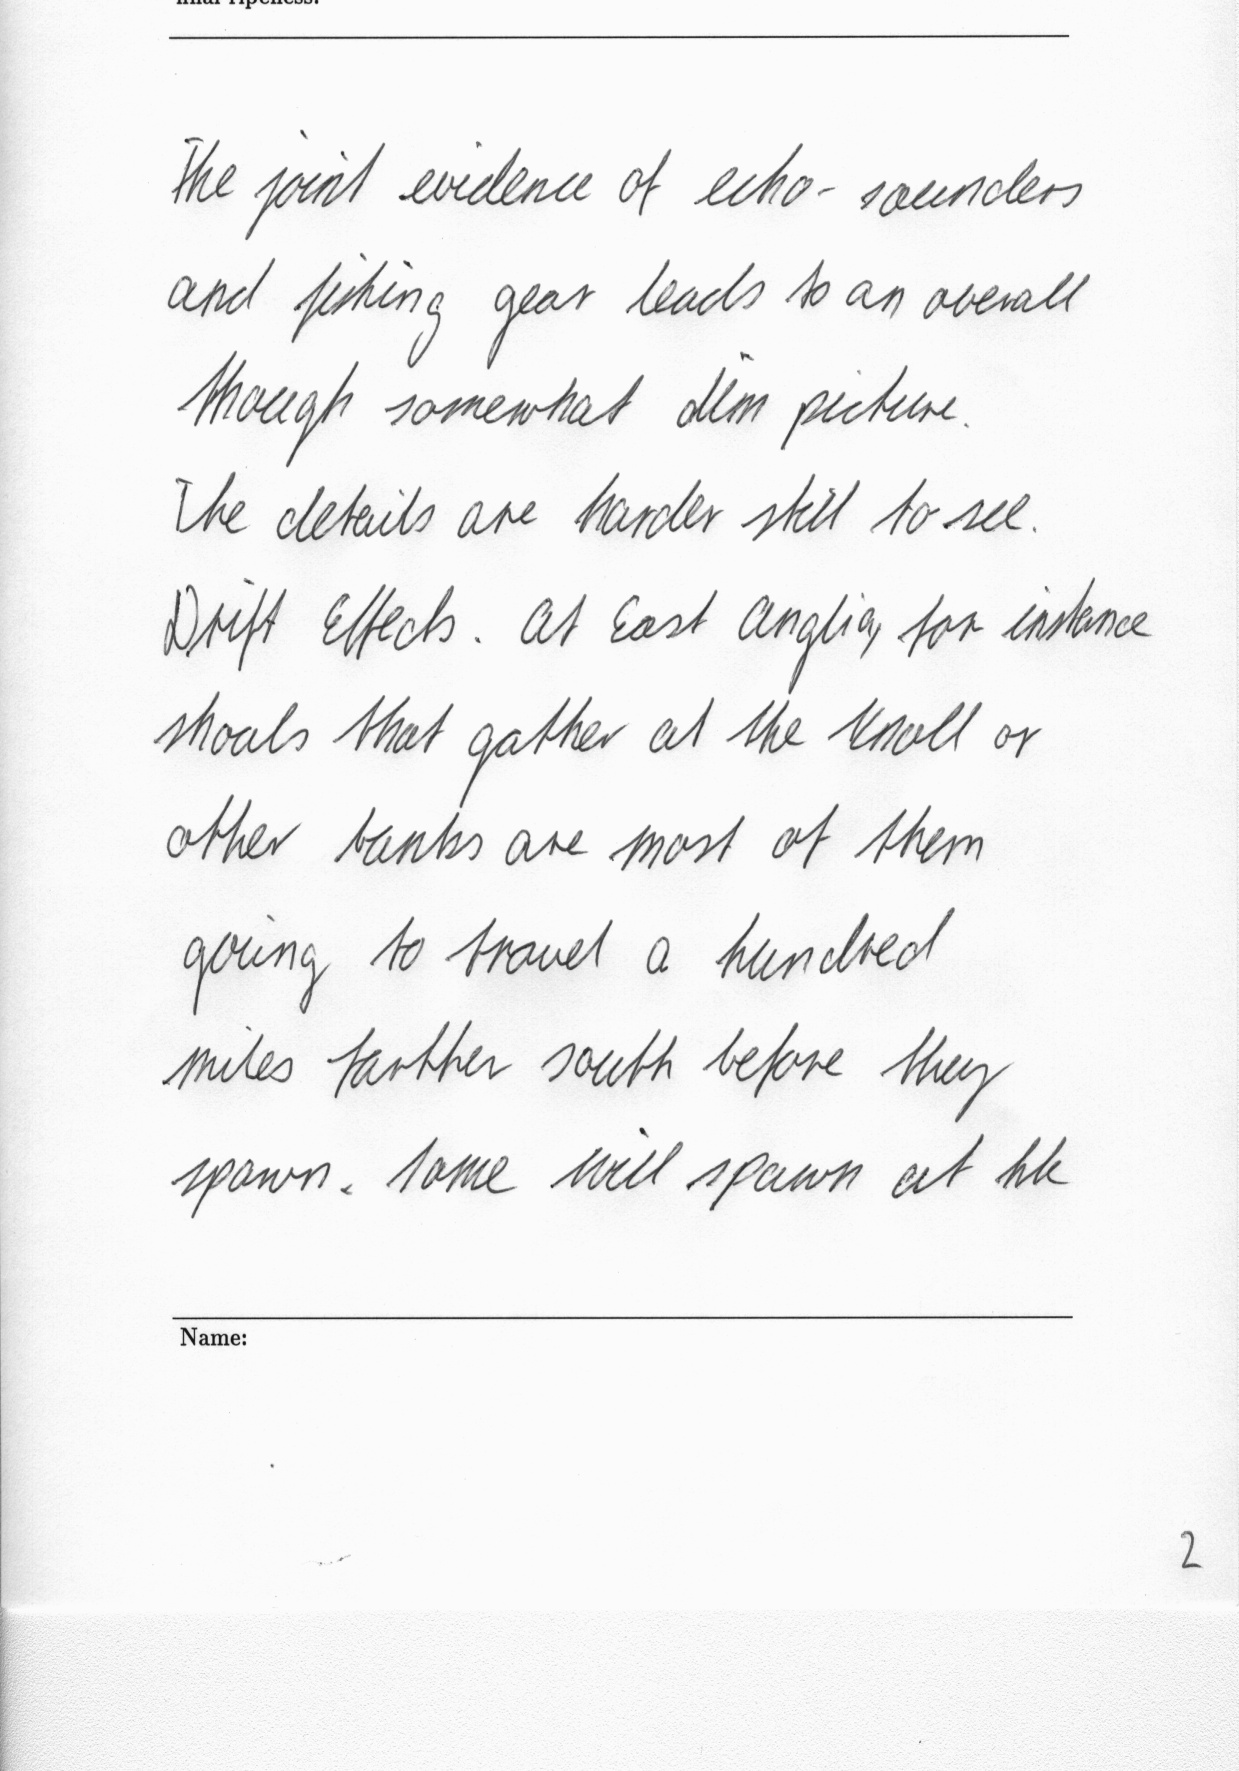 final ripeness.
The joint evidence of echo-sounders
and fishing gear leads to an overall
though somewhat dim picture.
The details are harder still to see.
Drift Effects. At East Anglia, for instance
shoals that gather at the Knoll or
other banks are most of them
going to travel a hundred
miles farther south before they
spawn. Some will spawn at the
Name:
2